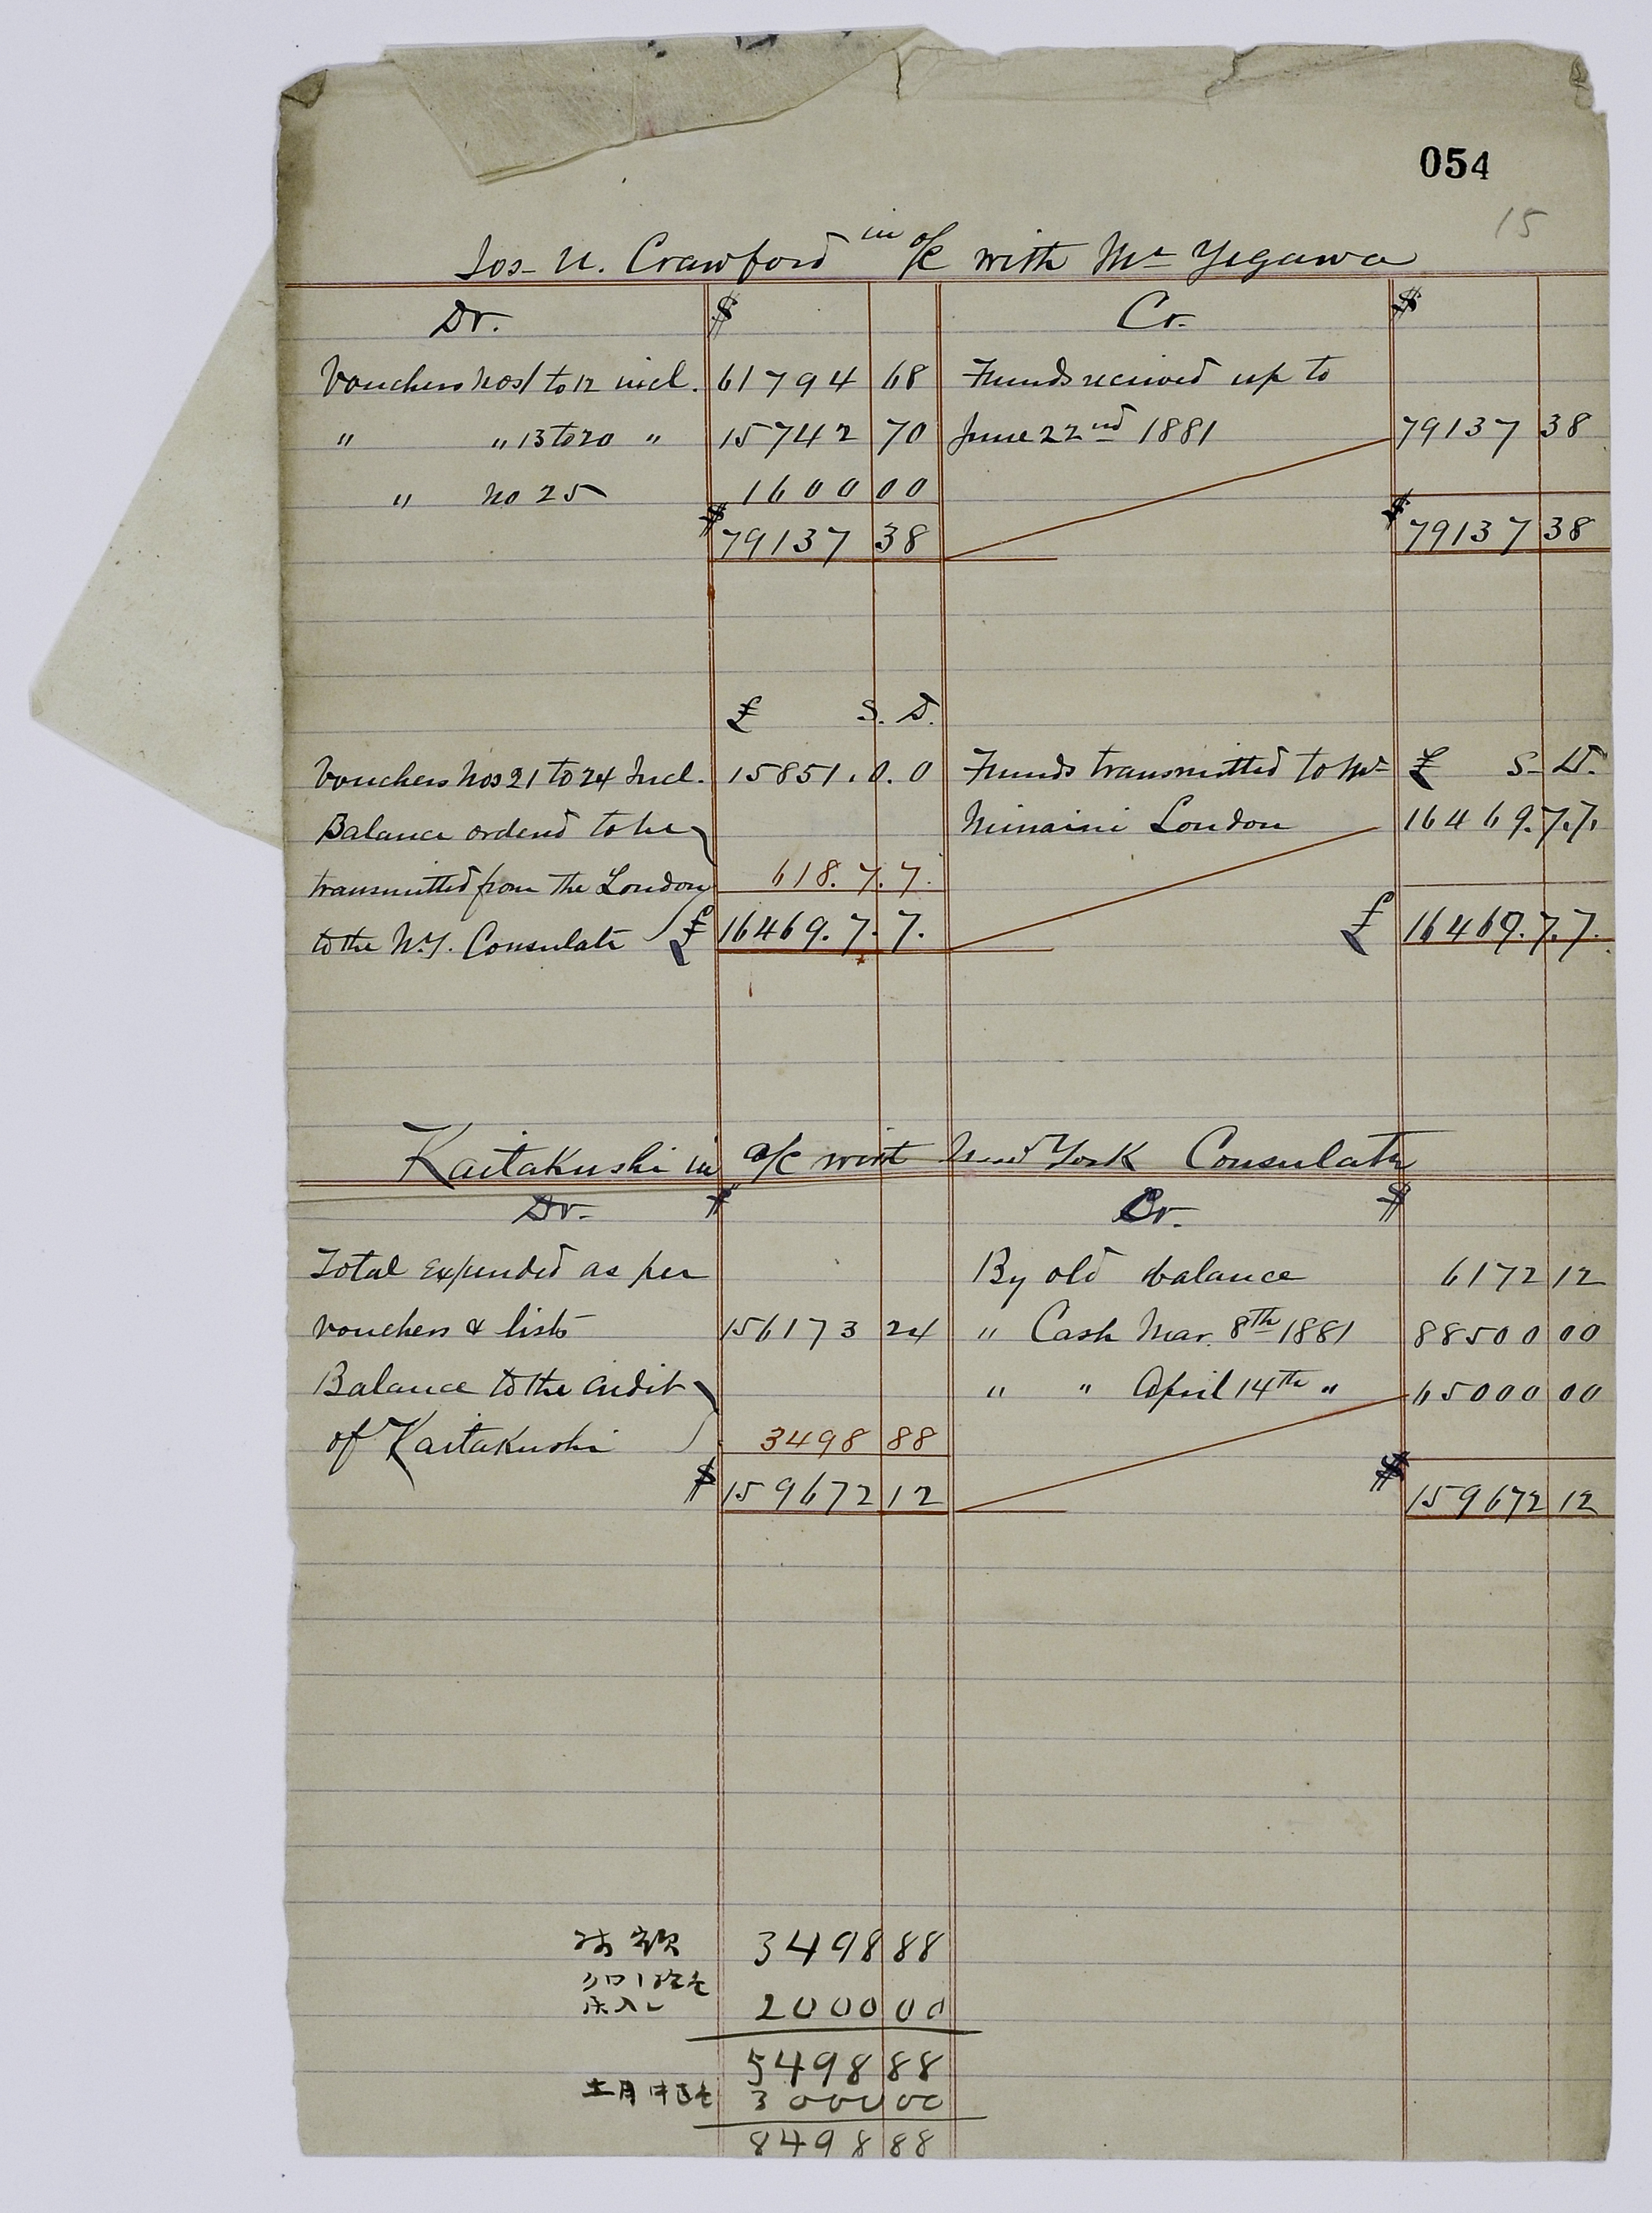 054
15
Jos. U. Crawford in a/c with Mr Yegawa
Dr. $ Cr. $
Vouchers Nos 1 to 12 incl. 61794 68 Funds received up to
" " 13 to 20 " 15742 70 June 22nd 1881 79137 38
" No 25 1600 00
$ 79137 38 $ 79137 38
£ S. D.
Vouchers Nos 21 to 24 Incl. 15851. 0. 0 Funds transmitted to Mr £ S. D.
Balance ordend to be London 16469. 7. 7.
transmitted from the London 618. 7. 7.
to the N.Y. Consulate £ 16469. 7. 7. £ 16469. 7. 7.
Kaitakushi in a/c with New York Consulate
Dr. $ Cr. $
Total Expended as per By old balance 6172 12
vouchers & lists 156173 24 " Cash Mar. 8th 1881 88500 00
Balance to the credit " " April 14th " 65000 00
of Kaitakushi 3498 88
$ 159672 12 $ 159672 12
残額 3498 88
2000 00
5498 88
3000 00
8498 88